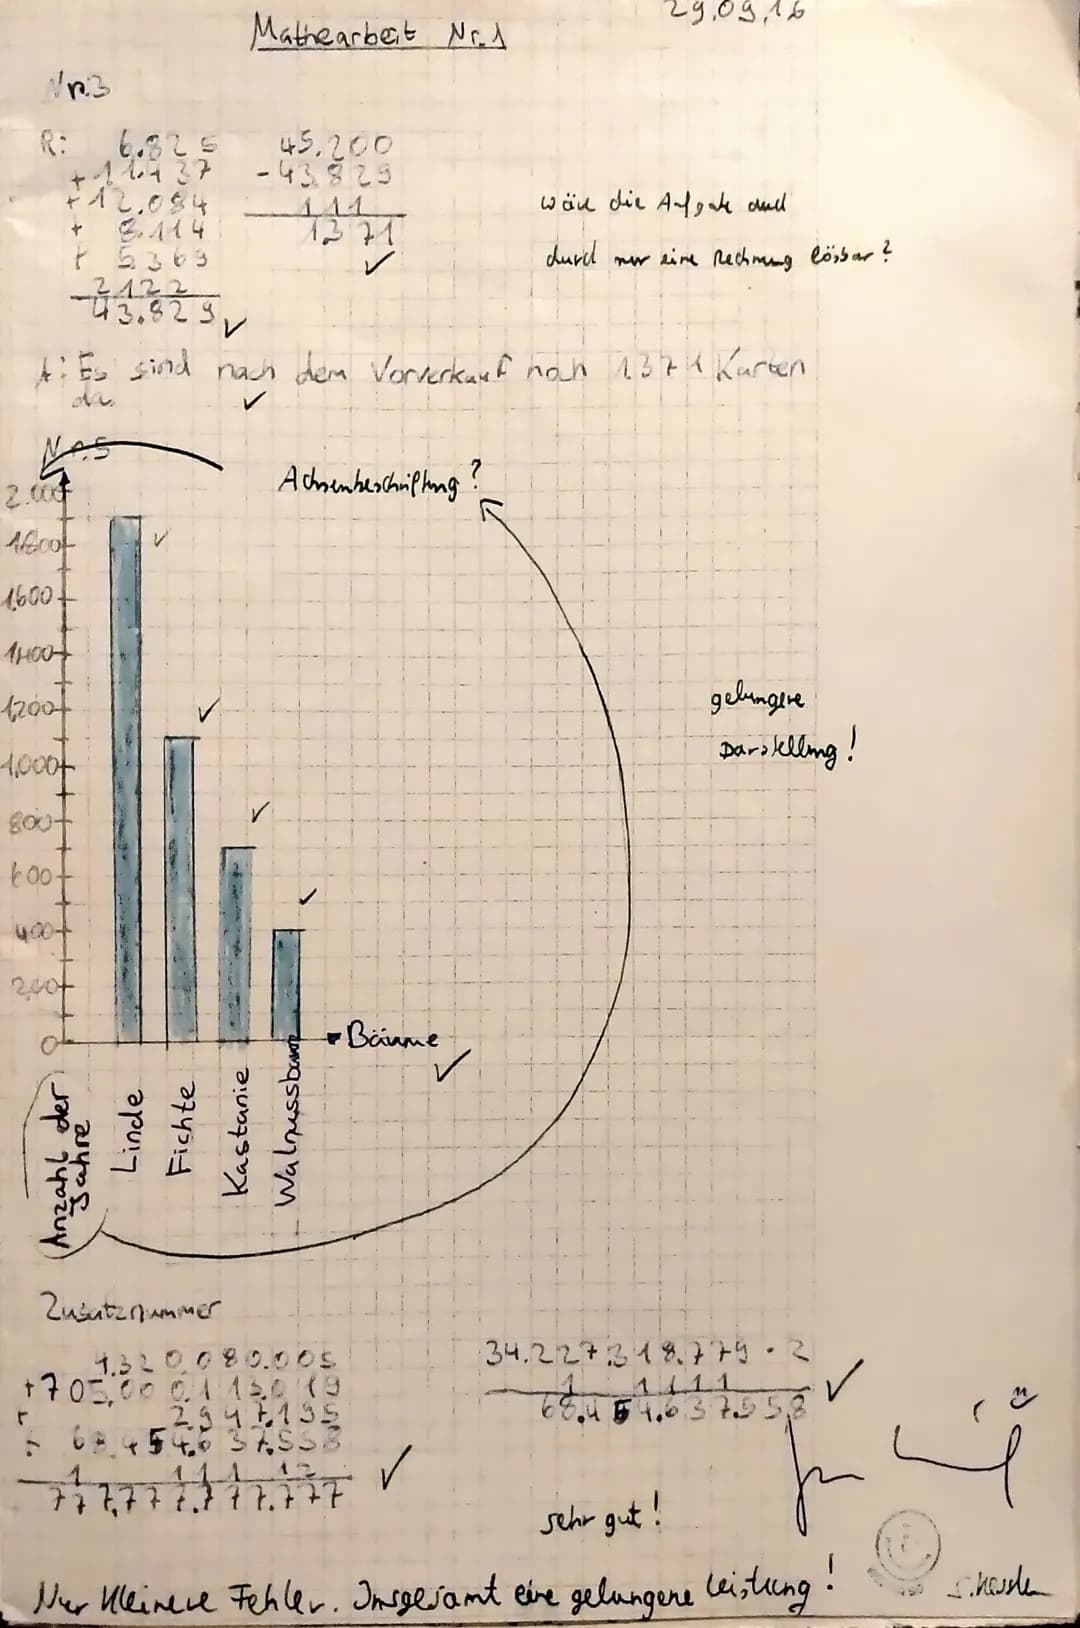 29.09.16
Mathearbeit Nr.1
Nr.3
R: 6.825
+11.437
+12.084
+ 8.114
+ 5369
2122
43.829 ✓
45.200
-43.829
111
1371
✓
wäre die Aufgabe auch
durch nur eine Rechnung lösbar?
A: Es sind nach dem Vorverkauf noch 1.371 Karten
da. ✓
Nr.5
Achsenbeschriftung?
2.000
1.800
1.600
1.400
1.200
1.000
800
600
400
200
0
✓
✓
✓
✓
gelungene
Darstellung!
Bäume
✓
Anzahl der
Jahre
Linde
Fichte
Kastanie
Walnussbaum
Zusatznummer
4.320.080.005
+705.000.113.019
+ 2.947.195
+ 68.454.637.558
1 111 12
777.777.777.777 ✓
34.227.318.779 · 2
1 1111
68.454.637.558 ✓
sehr gut!
Nur kleinere Fehler. Insgesamt eine gelungene Leistung!